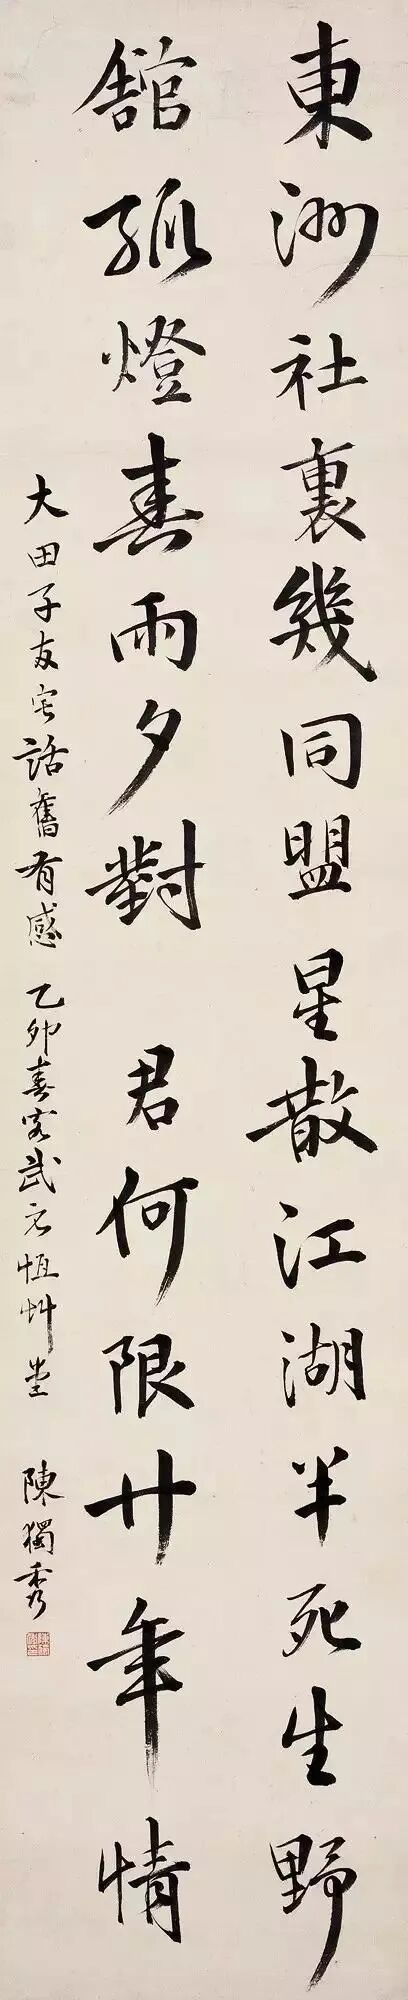 東洲社裏幾同盟星散江湖半死生野
舘孤燈春雨夕對 君何限廿年情
大田子友宅話舊有感 乙卯春客武 恆艸堂 陳獨秀